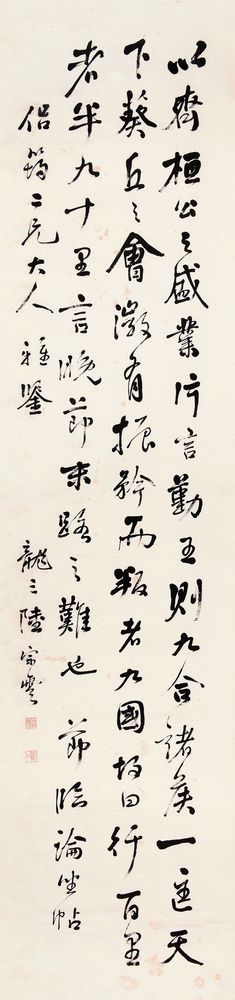 以齊桓公之盛業片言勤王則九合諸侯一匡天
下葵丘之會微有振矜而叛者九國故曰行百里
者半九十里言晚節末路之難也 節臨論坐帖
侶二兄大人雅鑒 龍三陸宗